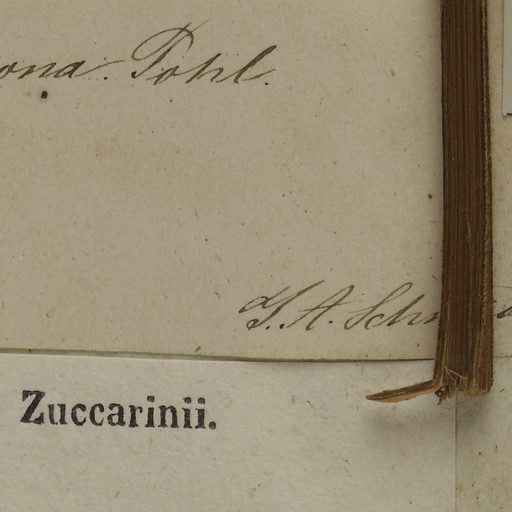 ona. Pohl.
J. A. Sch
Zuccarinii.